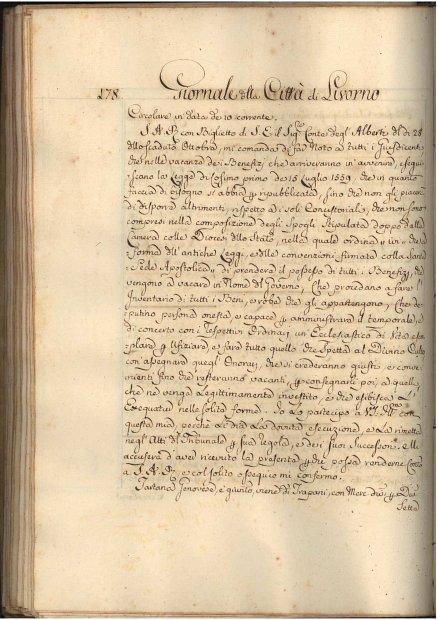 178. Giornale della Città di Livorno
Circolare in data de 10 corrente.
S. A. R. con Biglietto di S. E. il Sigre Conte degl' Alberti del dì 28
dello scaduto Ottobre, mi comanda di far Noto a tutti i Jusdicenti
che nelle vacanze dei Benefizj, che arriveranno in avvenire, esequi-
scano la Legge di Cosimo primo de 15 Luglio 1559, che in quanto
faccia di bisogno s'abbia p ripubblicata, fino che non gli piacerà
di disporre altrimenti rispetto ai soli Concistoriali, che non sono
compresi nella composizione degli Spogli Stipulata doppo dalla
Camera colle Diocesi dello Stato, nella quale ordina in
forma dell' antiche Leggi, e delle convenzioni firmata colla Santa
Sede Apostolica di prendere il possesso di tutti i Benefizj, che
vengono a vacare in Nome del Governo, Che procedano a fare l'
Inventario di tutti i Beni, e robe che gli appartengono, Che de-
putino persona onesta e capace p amministrare il temporale, e
di concerto con i respettivi Ordinarj un Ecclesiastico di vita esem-
plare p Ufiziare, e fare tutto quello che spetta al Divino Culto
con assegnare quegl' Onorarj, che si crederanno giusti, e conve-
nienti fino che resteranno vacanti, p consegnarli poi a quello,
che ne venga legittimamente investito, e che esibisca l'
Exequatur nelle solite forme. Io lo partecipo a V.S. con
questa mia, perchè le dia la dovuta esecuzione, e la rimetta
negl' Atti del Tribunale p sua regola, e dei suoi Successori. e Mi
accuserà d'aver ricevuto la presente p che possa renderne Conto
a S. A. R., e col solito ossequio mi confermo.
Tartana Genovese, è giunta, viene di Trapani, con Merci diverse, p Due
Sette